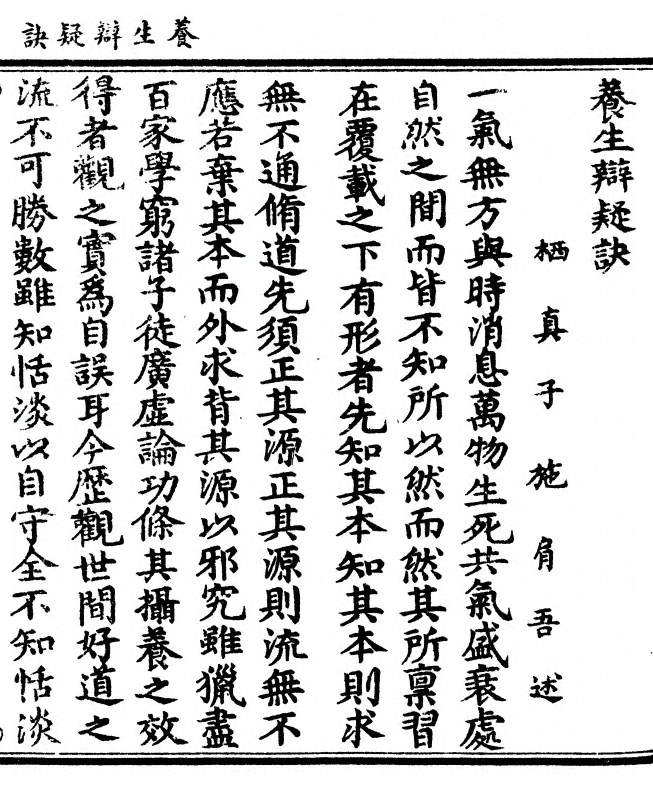 養生辯疑訣
養生辯疑訣
栖真子施肩吾述
一氣無方與時消息萬物生死共氣盛衰處
自然之間而皆不知所以然而然其所稟習
在覆載之下有形者先知其本知其本則求
無不通脩道先須正其源正其源則流無不
應若棄其本而外求背其源以邪究雖獵盡
百家學窮諸子徒廣虛論功條其攝養之效
得者觀之實為自誤耳今歷觀世間好道之
流不可勝數雖知恬淡以自守全不知恬淡